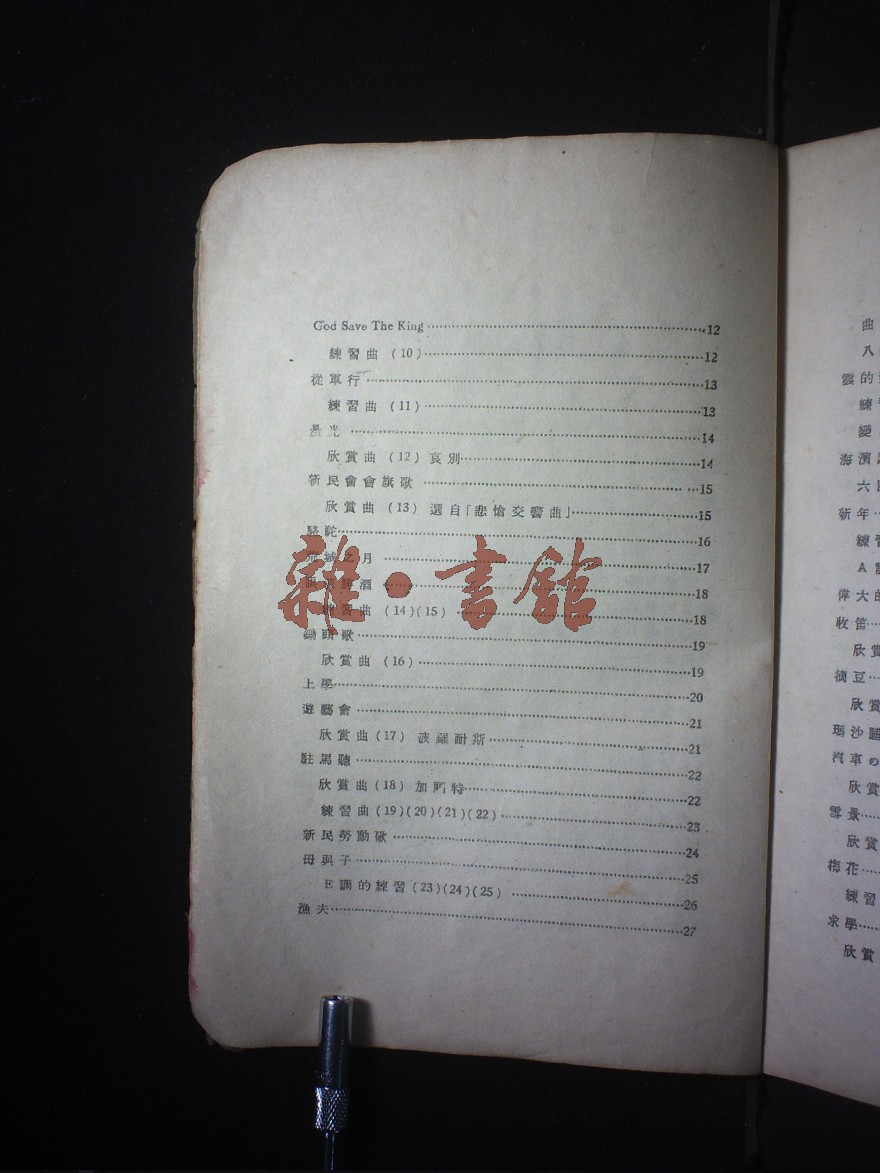 God Save The King 12
練習曲 (10) 12
從軍行 13
練習曲 (11) 13
晨光 14
欣賞曲 (12) 哀別 14
新民會會旗歌 15
欣賞曲 (13) 選自「悲愴交響曲」 15
駱駝 16
荒城之月 17
酒 18
練習曲 (14)(15) 18
鋤頭歌 19
欣賞曲 (16) 19
上學 20
遊藝會 21
欣賞曲 (17) 波羅耐斯 21
駐馬聽 22
欣賞曲 (18) 加阿特 22
練習曲 (19)(20)(21)(22) 23
新民勞動歌 24
母與子 25
E調的練習 (23)(24)(25) 26
漁夫 27
雜·書館
曲
八
雲的
練習
變
海濱
六
新年
練習
A
偉大的
牧笛
欣賞
摘豆
欣賞
瑪沙
汽車の
欣賞
雪景
欣賞
梅花
練習
求學
欣賞